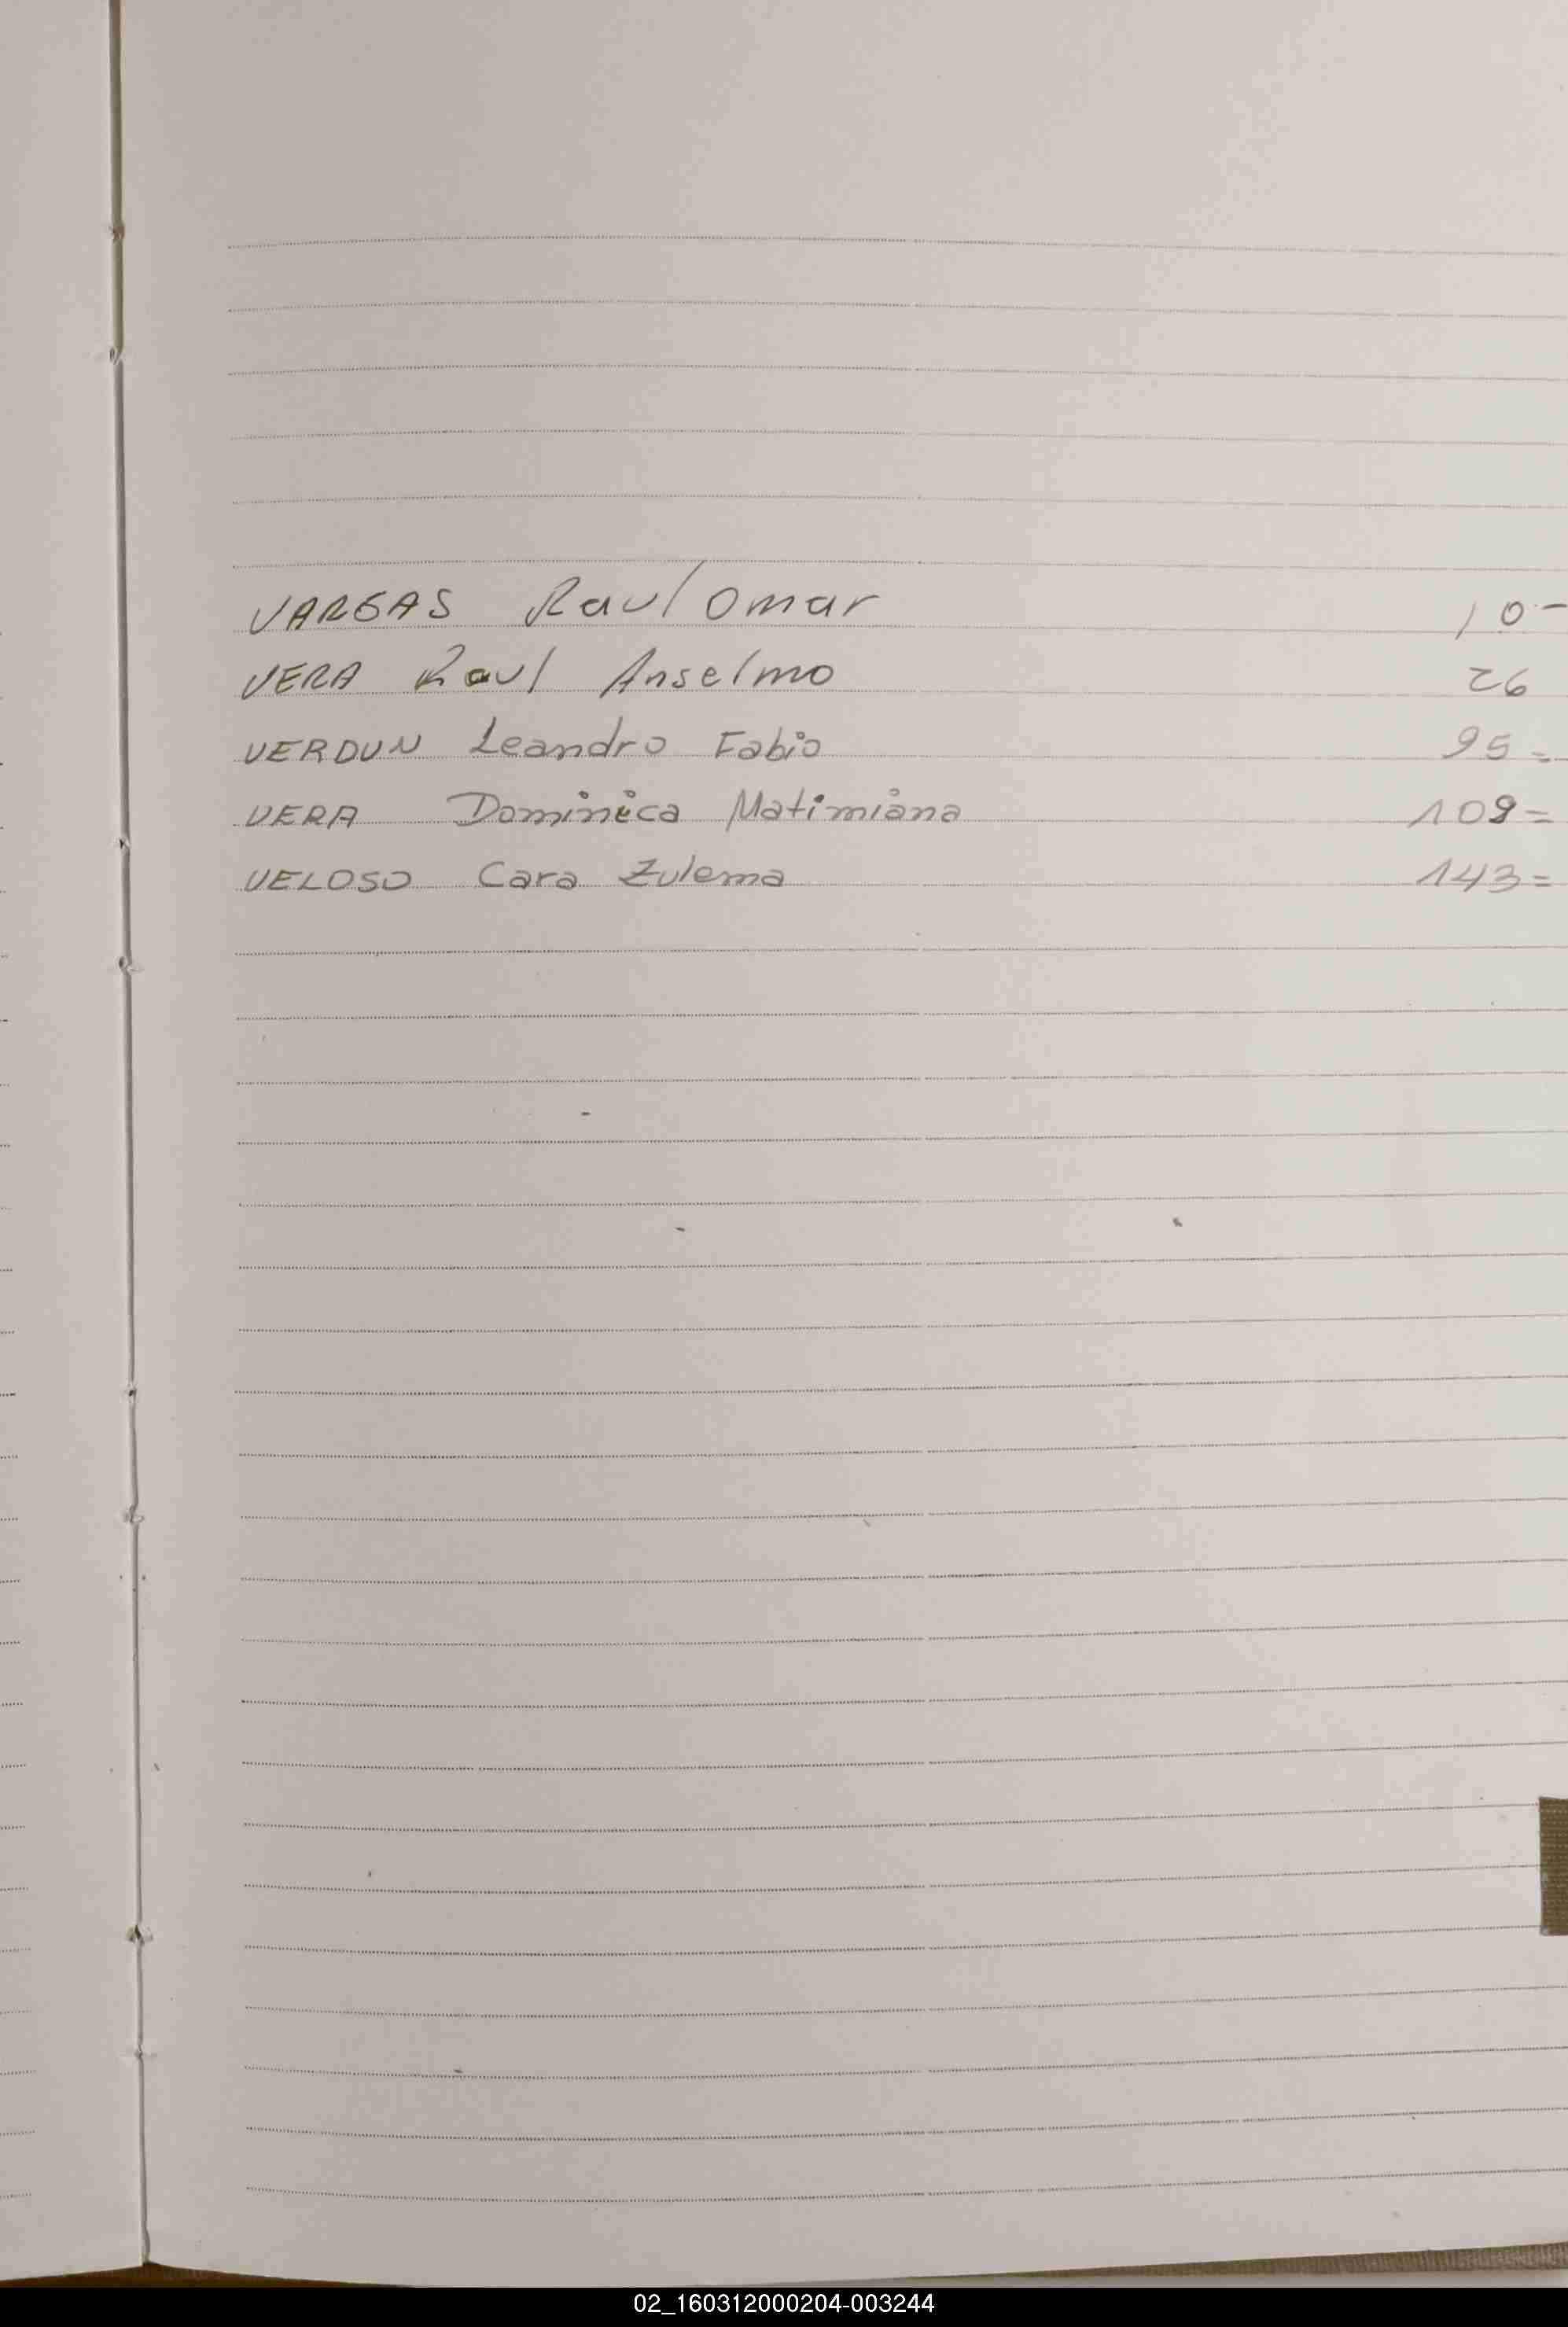 VARGAS Raul Omar 10-
VERA Raul Anselmo 26
VERDUN Leandro Fabio 95=
VERA Dominica Matimiana 109=
VELOSO Cara Zulema 143=
02_160312000204-003244